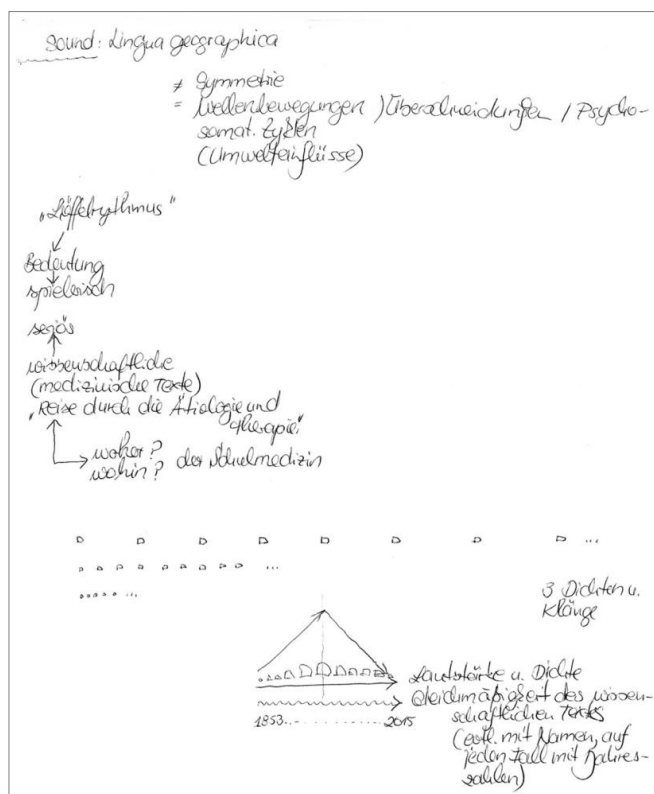 Sound: Lingua geographica
≠ Symmetrie
= Wellenbewegungen / Überschneidungen / Psycho-
somat. Zyklen
(Umwelteinflüsse)
„Löffelrythmus“
Bedeutung
spielerisch
seriös
wissenschaftliche
(medizinische Texte)
„Reise durch die Ätiologie und
Therapie“
woher?
wohin? der Schulmedizin
...
...
...
3 Dichten u.
Klänge
Lautstärke u. Dichte
Gleichmäßigkeit des wissen-
schaftlichen Texts
1853..-..........2015
(evtl. mit Namen, auf
jeden Fall mit Jahres-
zahlen)